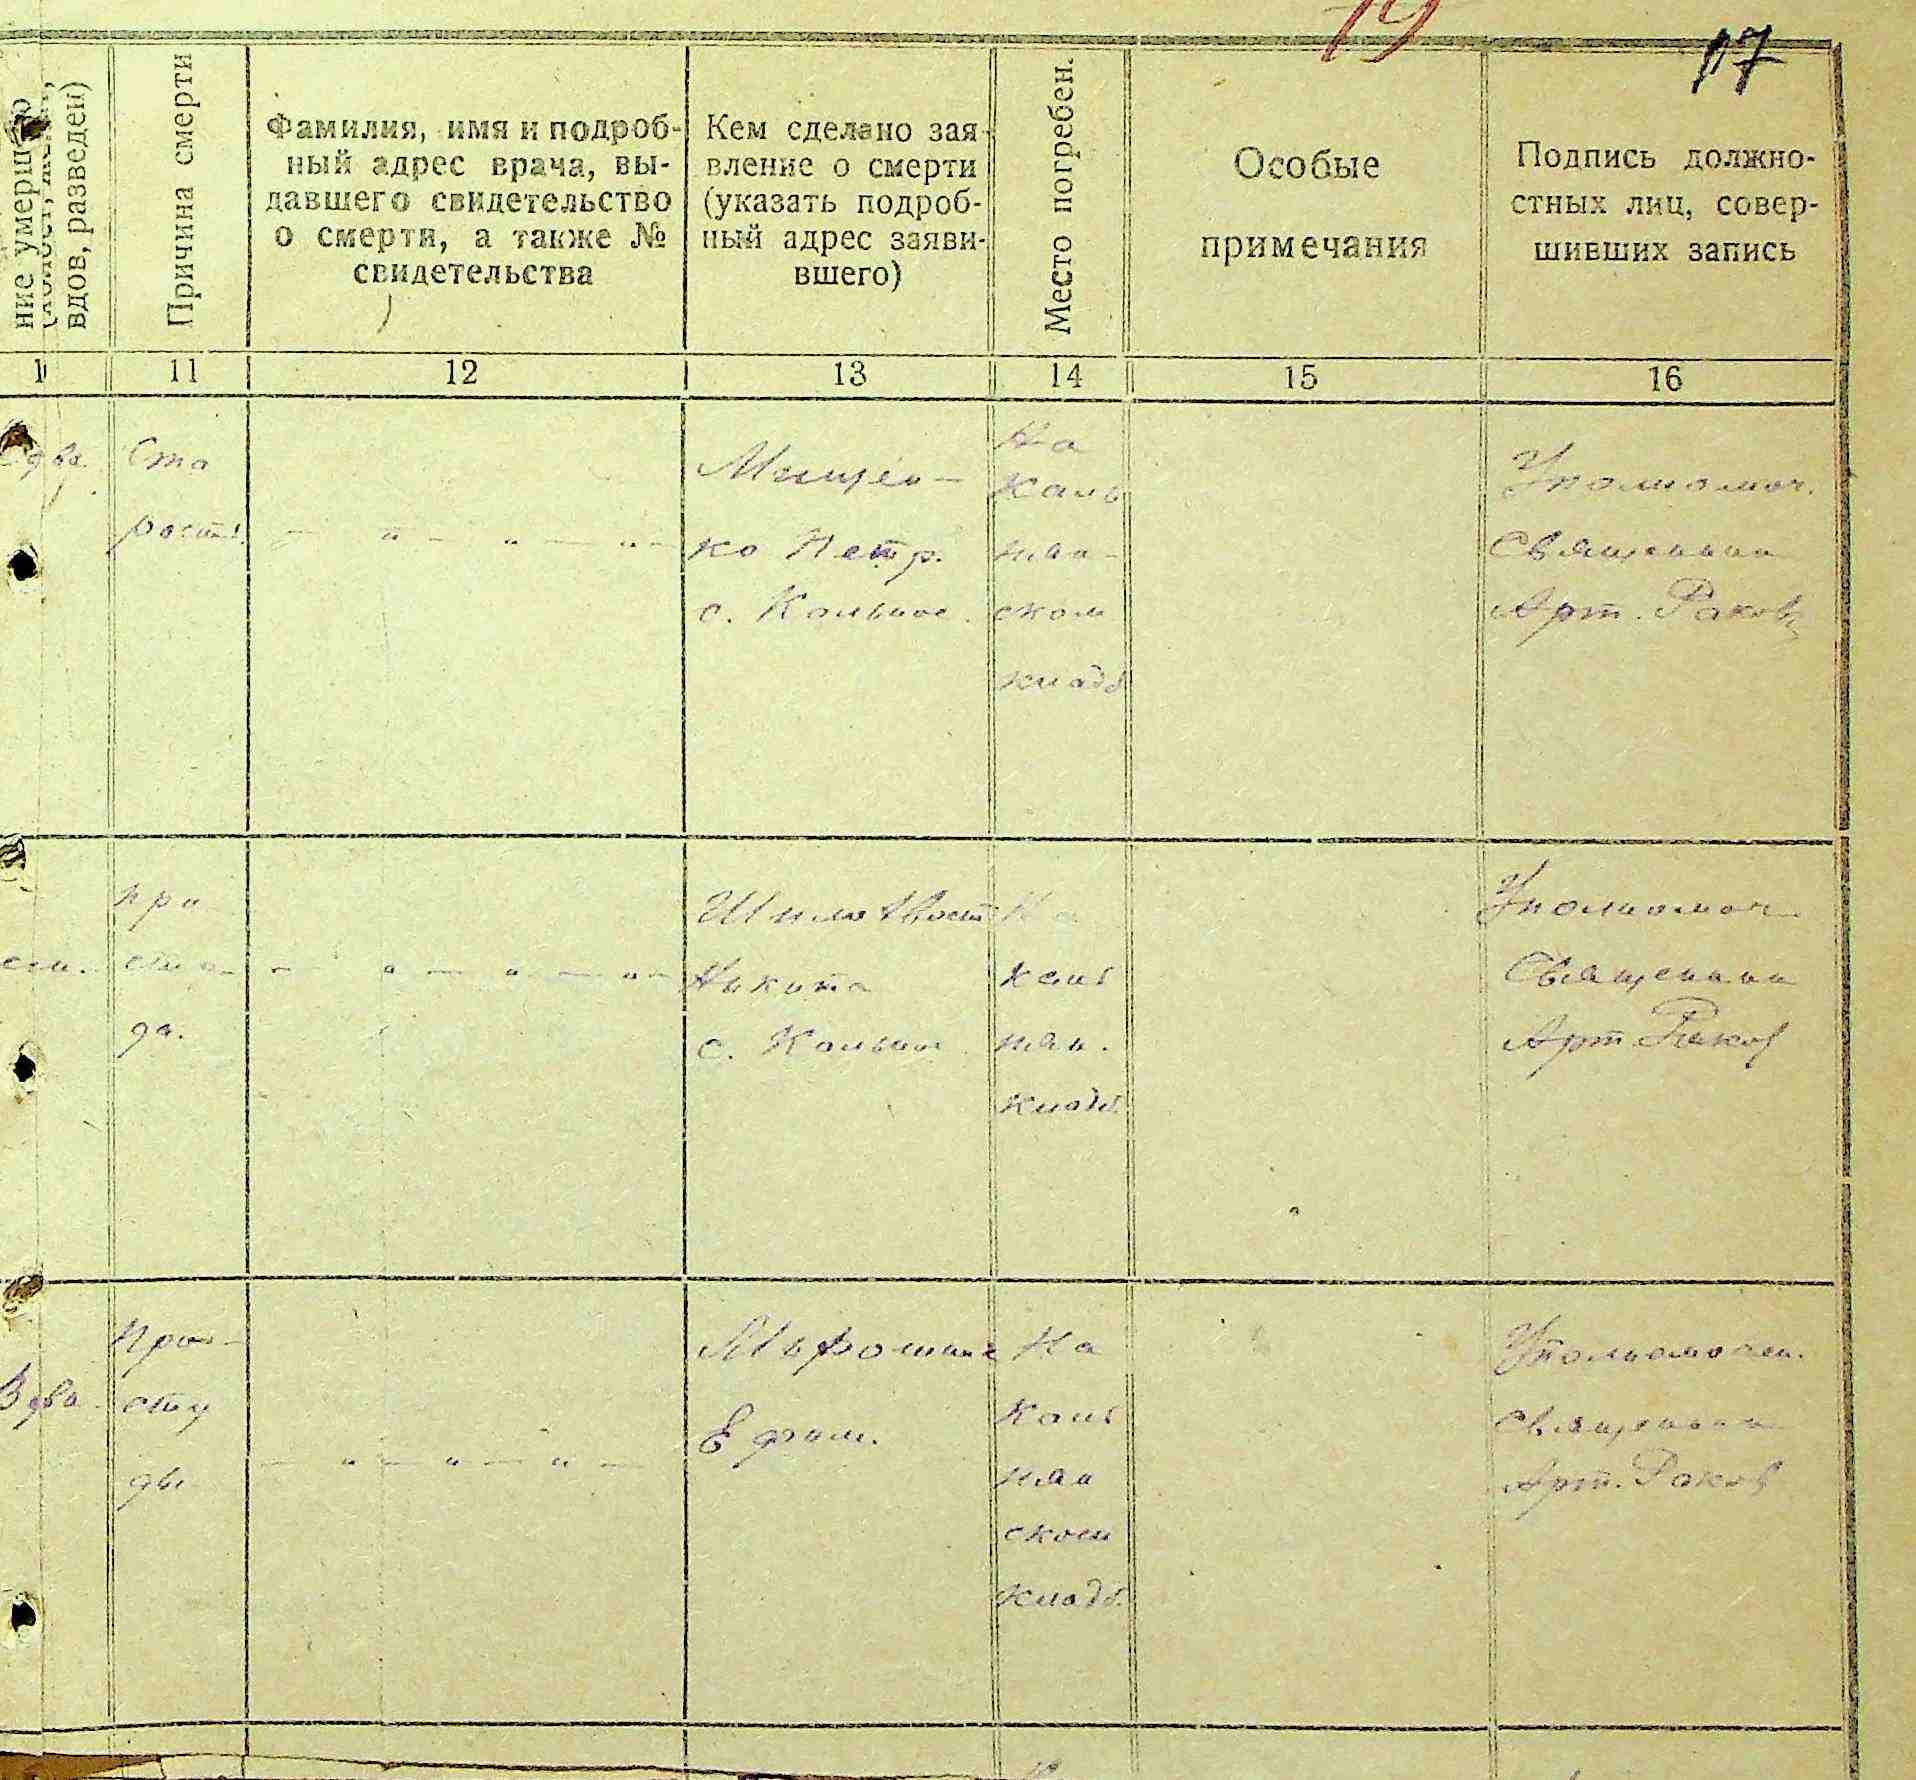 19
17
ние умерш
вдов, разведен)
Причина смерти
Фамилия, имя и подроб-
ный адрес врача, вы-
давшего свидетельство
о смерти, а также №
свидетельства
Кем сделано зая-
вление о смерти
(указать подроб-
ный адрес заяви-
вшего)
Место погребен.
Особые
примечания
Подпись должно-
стных лиц, совер-
шивших запись
11
12
13
14
15
16
Ста
рость
Мищен-
ко Петр.
с.
На
каль
ском
кладб
Уполномоч.
Священник
Арт. Раков
про
сту
да.
Никита
с.
На
каль
кладб.
Уполномоч.
Священник
Арт. Раков
Вдва
про-
сту
ды
Ефим.
На
каль
ском
кладб.
Уполномочен.
Священник
Арт. Раков